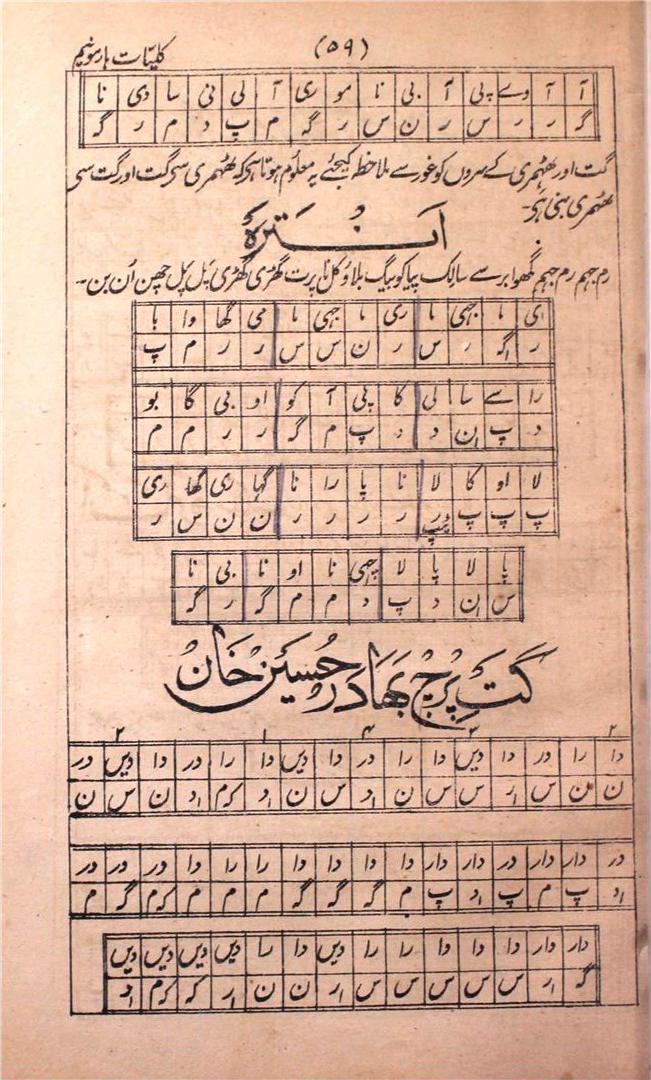 کلیّات ہارمونیم (۵۹)
آ آ وے پی آ بی نا مو ری آ لی نی سا دی نا
گ ر ر س ر ن س ر گ م پ د م ر گ
گت اور ٹھمری کے سروں کو غور سے ملاخطہ کیجئے یہ معلوم ہوتا ہی کہ ٹھمری سی گت اور گت سی
ٹھمری بنی ہی۔
انترہ
رم جہم رم جہم گھوا برسے سالک پیا کو بیگ بلاؤ کل نا پرت گھڑی گھڑی پل پل چھن اُن بن۔۔
ری ما جہی ما ری ما جہی ما می گھا وا با
ر گ ر س ر ن س س ر ر م پ
را سے سا لی کا پی آ کو او بی گا بو
د پ ن د د پ م گ ر ر م م
لا او کا لا نا پا را نا گہا ری گھا ری
پ پ پ ر ر ر ر ن ن س ر
پا لا پا لا چھی نا او نا بی نا
س ن د پ د م م گ ر گ
گت برج بہادر حسین خان
۲ ۲ ۴ ۱ ۲
دا را در دا دیں دا را در دا دیں دا را در دا دیں در
ن ن س ر س س ن د س ن د کرم د ن س ن
در دار دار در دار دار دا دا دا دا را را دا در در در
د پ م پ د پ م گ گ گ م م م کرم گ م
دار دار دا دا دا را را دیں دا را دیں دیں دیں دیں
گ ر س س س س س ر ن ن ر ک کرم د